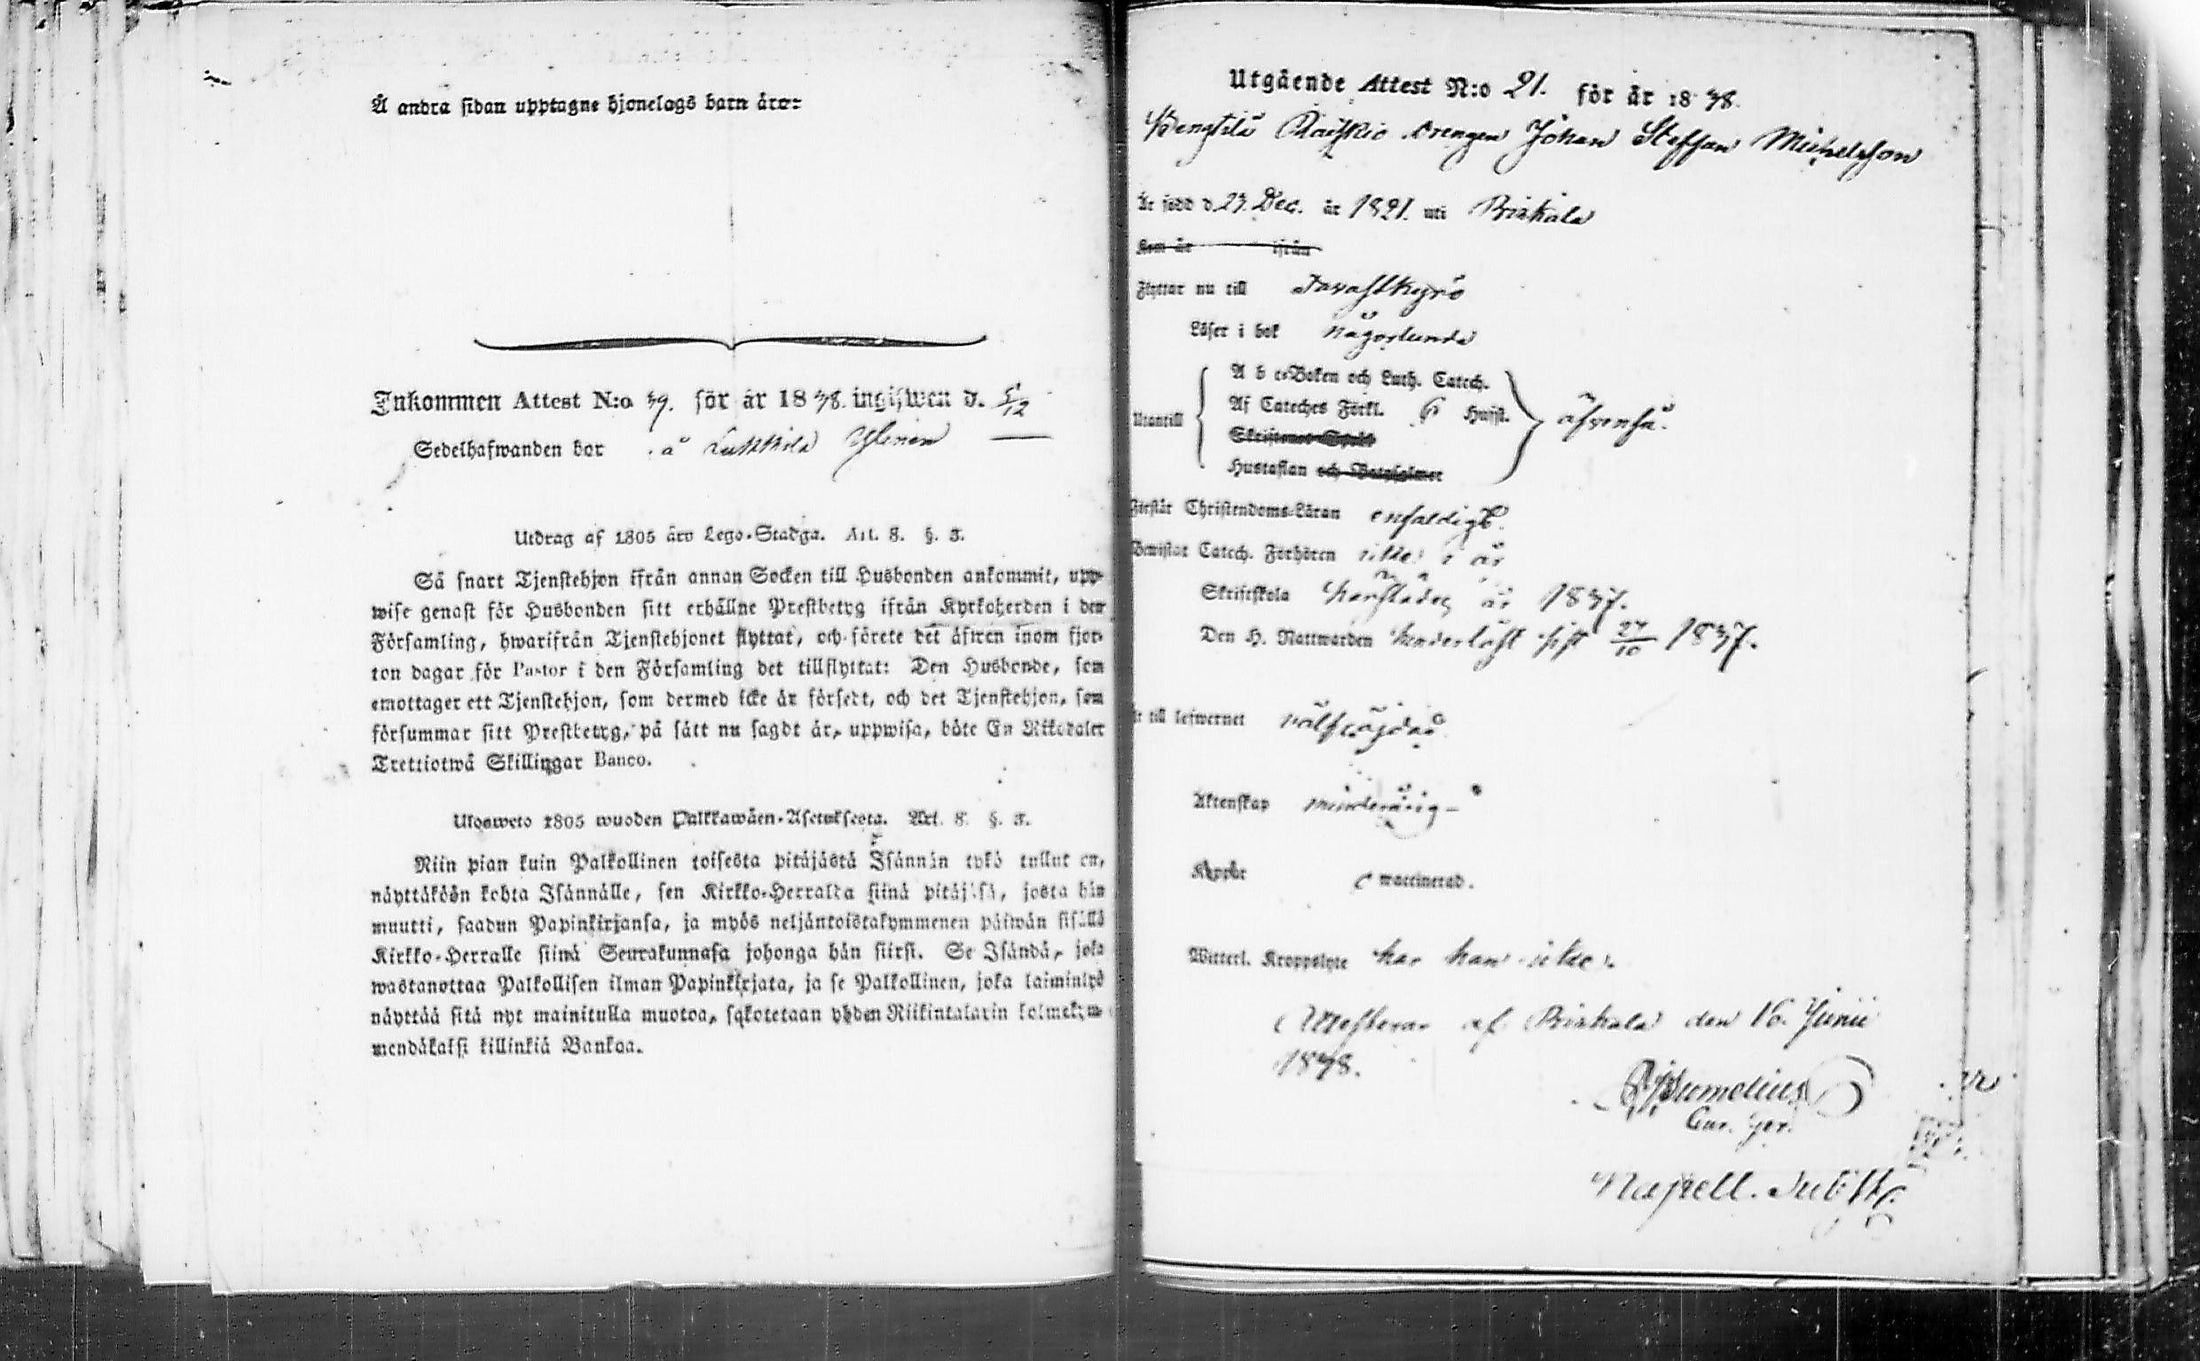 Å andra sidan upptagne hjonelags barn äro:
Inkommen Attest N:o 39. för år 1838. ingifwen d. 5/12
Sedelhafwanden bor å Lukkila Ylinen
Utdrag af 1805 års Lego-Stadga. Art. 8. §. 3.
Så snart Tjenstehjon ifrån annan Socken till Husbonden ankommit, upp-
wise genast för Husbonden sitt erhållne Prestbetyg ifrån Kyrkoherden i den
Församling, hwarifrån Tjenstehjonet flyttat, och förete det äfwen inom fjor-
ton dagar för Pastor i den Församling det tillflyttat: Den Husbonde, som
emottager ett Tjenstehjon, som dermed icke är försedt, och det Tjenstehjon, som
försummar sitt Prestbetyg, på sätt nu sagdt är, uppwisa, böte En Riksdaler
Trettiotwå Skillingar Banco.
Ulosweto 1805 wuoden Palkkawäen-Asetuksesta. Art. 8. §. 3.
Niin pian kuin Palkollinen toisesta pitäjästä Isännän tykö tullut on,
näyttäköön kohta Isännälle, sen Kirkko-Herralta siinä pitäjäsä, josta hän
muutti, saadun Papinkirjansa, ja myös neljäntoistakymmenen päiwän sisällä
Kirkko-Herralle siinä Seurakunnasa johonga hän siirsi. Se Isändä, joka
wastanottaa Palkollisen ilman Papinkirjata, ja se Palkollinen, joka laiminlyö
näyttää sitä nyt mainitulla muotoa, sakotetaan yhden Riikintalarin kolmekym-
mendäkaksi killinkiä Bankoa.
Utgående Attest N:o 21. för år 1838.
Bengtilä Drengen Johan Steffan Michelsson
Är född d. 23. Dec. år 1821. uti Birkala
Kom år ifrån
Flyttar nu till Tavastkyrö
Läser i bok någorlunda
A b c-Boken och Luth. Catech.
Af Cateches Förkl. 6 Hufst.
Utantill äfvenså.
Hustaflan och Botpsalmer
Förstår Christendoms-Läran enfaldigt.
Bewistat Catech. Förhören icke i år
Skriftskola år 1837.
Den H. Nattwarden sist 27/10 1837.
Är till lefwernet välfrägdad
Äktenskap minderårig
Koppor waccinerad.
Witterl. Kroppslyte har han icke.
Attesterar af Birkala den 16. Junii
1838.